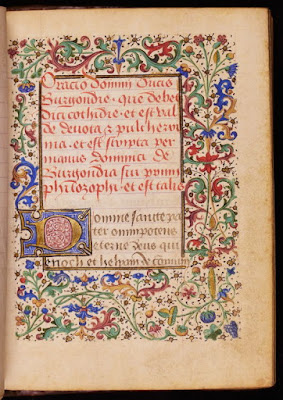 Oracio Domini Ducis
Burgondie · que debet
dici cothidie · et est val
de devota & pulcherri
ma · et est scripta per
manus domini de
Burgondia sui primi
philozophi · et est talis
Domine sancte pa
ter omnipotens
eterne deus qui
Enoch et heliam de comuni